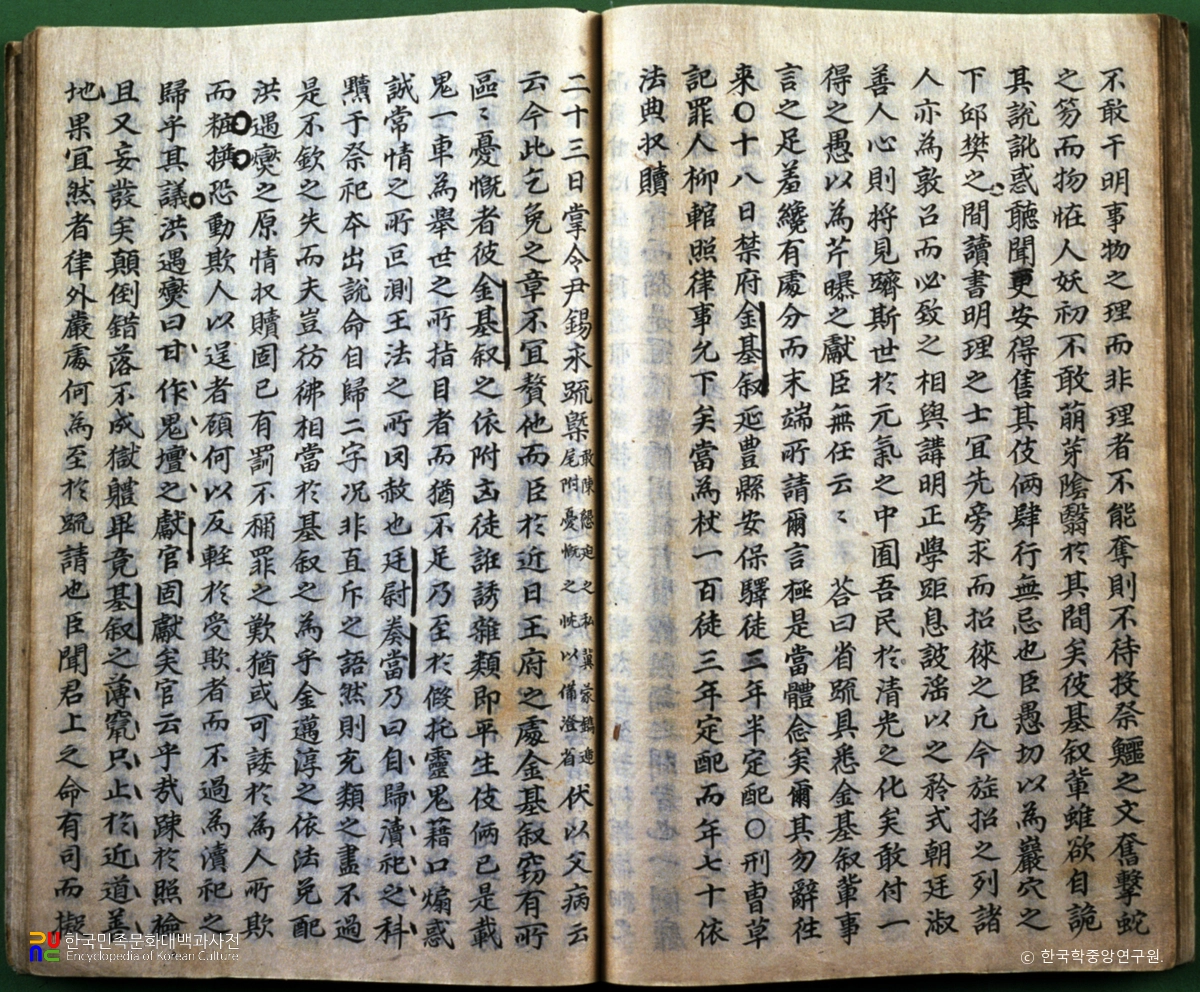 不敢干明事物之理而非理者不能奪則不待投祭鱷之文奮擊蛇
之笏而物恠人妖初不敢萌芽陰翳於其間矣彼基叙輩雖欲自詭
其說訛惑聽聞更安得售其伎倆肆行無忌也臣愚切以為巖穴之
下邱樊之間讀書明理之士冝先旁求而招徠之凢今旋招之列諸
人亦為敦召而必致之相與講明正學距息詖滛以之矜式朝廷淑
善人心則将見躋斯世於元氣之中囿吾民於清光之化矣敢付一
得之愚以為芹曝之獻臣無任云〻 答曰省䟽具悉金基叙輩事
言之足羞纔有處分而末端所請爾言極是當體念矣爾其勿辭徃
來〇十八日禁府金基叙延豊縣安保驛徒三年半定配〇刑曹草
記罪人柳𨋀照律事允下矣當為杖一百徒三年定配而年七十依
法典収贖
二十三日掌令尹錫永䟽槩敢陳懸迫之私兾蒙鐫遞尾附憂慨之忱以備澄省伏以父病云
云今此乞免之章不冝贅他而臣於近日王府之處金基叙窃有所
區〻憂慨者彼金基叙之依附凶徒誑誘雜類即平生伎倆已是載
鬼一車為舉世之所指目者而猶不足乃至於假托靈鬼藉口煽惑
誠常情之所叵測王法之所罔赦也廷尉奏當乃曰自歸瀆祀之科
黷于祭祀夲出說命自歸二字况非直斥之語然則充類之盡不過
是不欽之失而夫豈彷彿相當於基叙之為乎金邁淳之依法免配
洪遇燮之原情収贖固已有罰不稱罪之歎猶或可諉於為人所欺
而粧撰恐動欺人以逞者碩何以反輕於受欺者而不過為瀆祀之
歸乎其議洪遇燮曰甘作鬼壇之獻官固獻矣官云乎㢤踈於照檢
且又妄發矣顛倒錯落不成獄軆畢竟基叙之薄竄只止於近道善
地果冝然者律外嚴處何為至於䟽請也臣聞君上之命有司而擬
한국민족문화대백과사전
Encyclopedia of Korean Culture
ⓒ 한국학중앙연구원.